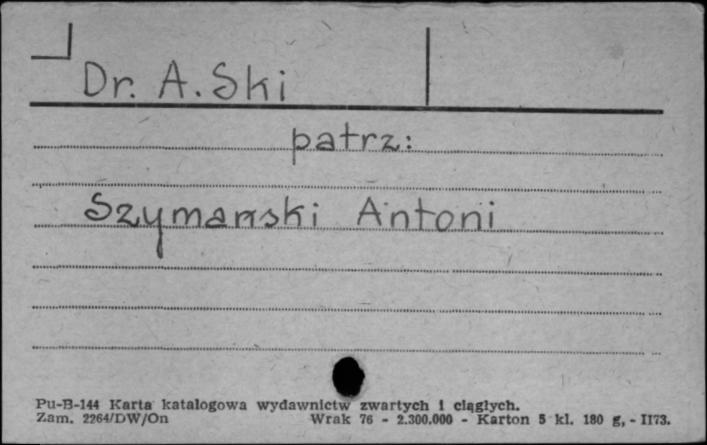 Dr. A. Ski
patrz:
Szymański Antoni
Pu-B-144 Karta katalogowa wydawnictw zwartych i ciągłych.
Zam. 2264/DW/On Wrak 76 - 2.300.000 - Karton 5 kl. 180 g, - II73.